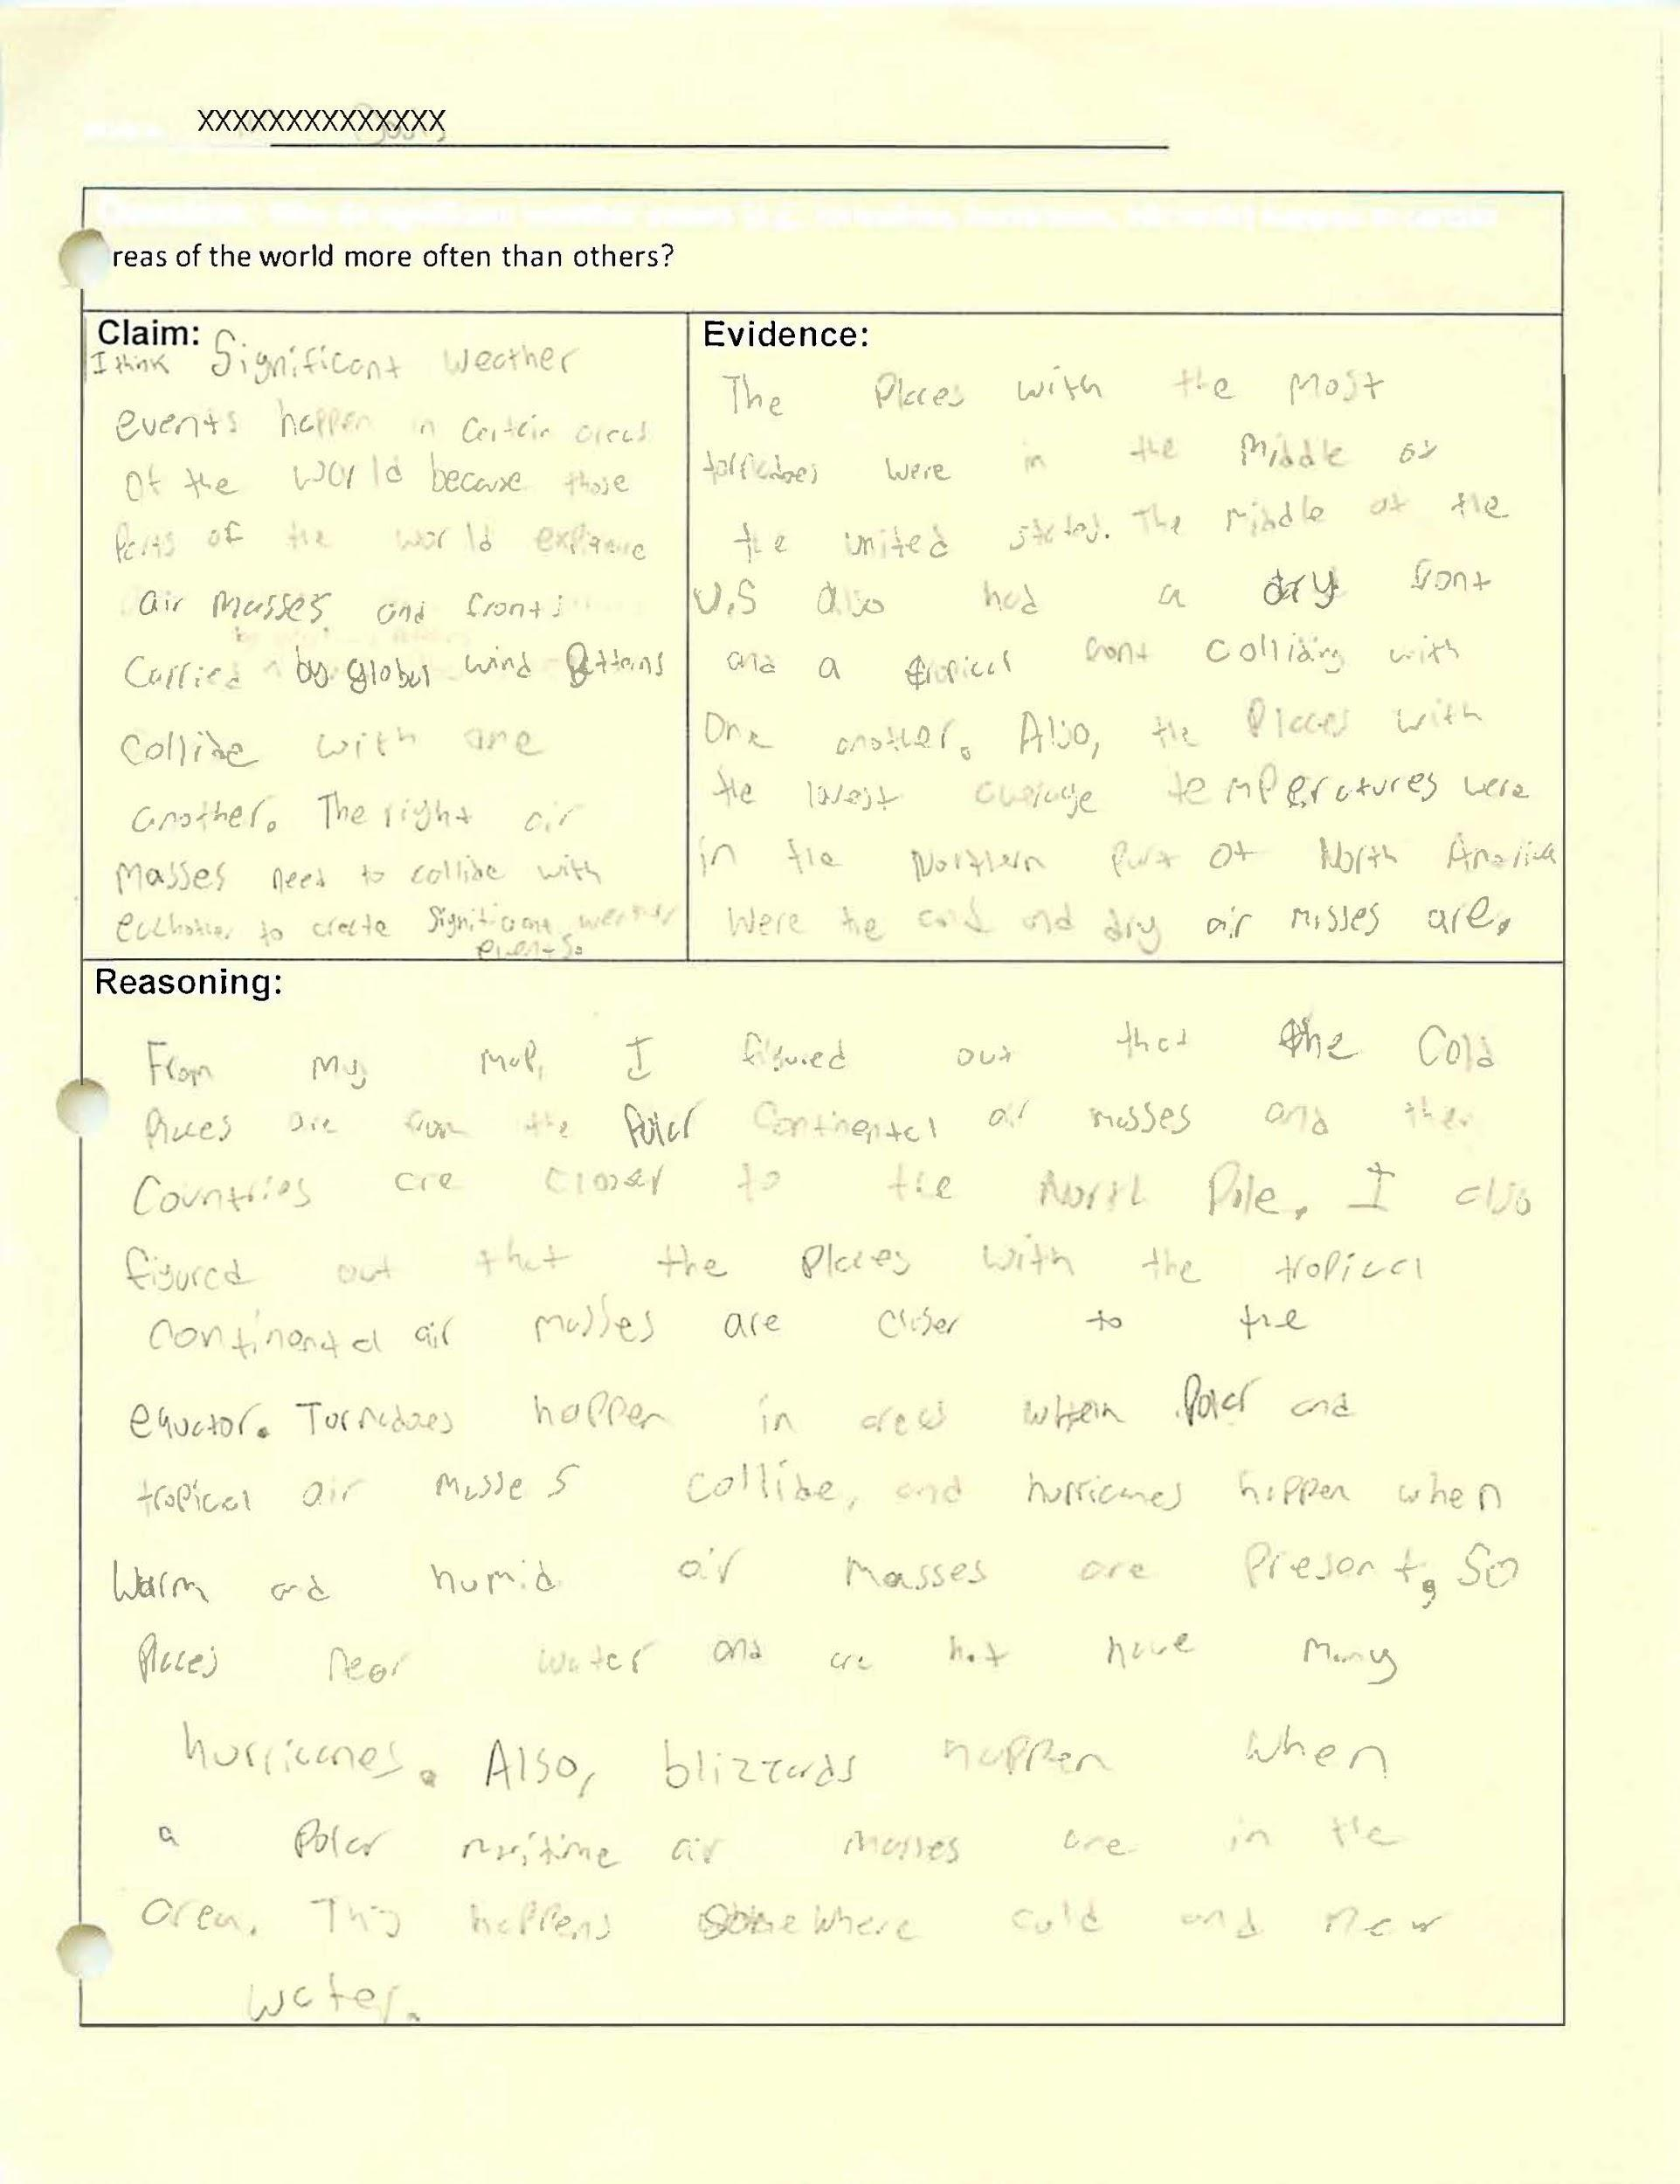 XXXXXXXXXXXXXX
reas of the world more often than others?
Claim:
I think Significant Weather
events happen in certain areas
Of the World because those
Parts of the world experience
air Masses and fronts
Carried by global wind Patterns
Collide with one
another. The right air
Masses need to collide with
eachother to create Significant weather
events.
Evidence:
The Places with the Most
tornadoes were in the Middle of
the united states. The Middle of the
U.S also had a dry front
and a tropical front Colliding with
One another. Also, the Places with
the lowest average temperatures were
in the Northern Part of North America
Were the cold and dry air masses are.
Reasoning:
From My Map, I figured out that the Cold
Places are from the Polar Continental air masses and the
Countries are closer to the North Pole. I also
figured out that the Places with the tropical
Continental air masses are closer to the
equator. Tornadoes happen in areas when Polar and
tropical air masses collide, and hurricanes happen when
Warm and humid air Masses are Present, So
Places near water and are hot have Many
hurricanes. Also, blizzards happen when
a Polar maritime air masses are in the
area. This happens somewhere cold and near
water.